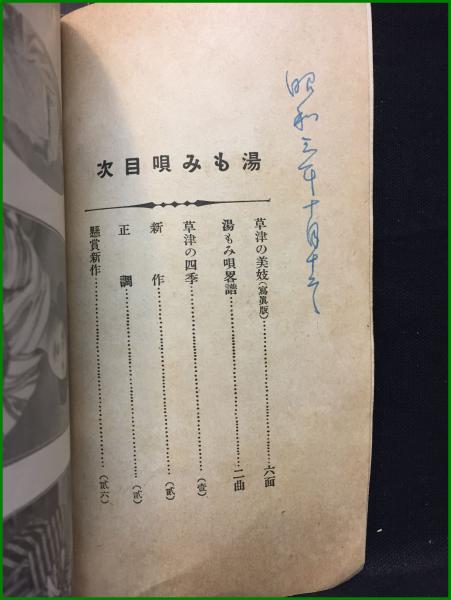 昭和三年十月十六
湯もみ唄目次
草津の美妓（寫眞版）……六面
湯もみ唄畧譜……二曲
草津の四季……（壹）
新作……（貳）
正調……（貳）
懸賞新作……（貳六）